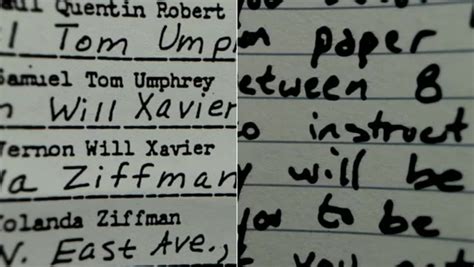 Paul Quentin Robert
l Tom Ump
Samuel Tom Umphrey
n Will Xavier
Vernon Will Xavier
la Ziffman
Yolanda Ziffman
N. East Ave.,
paper
between 8
to instruct
will be
you to be